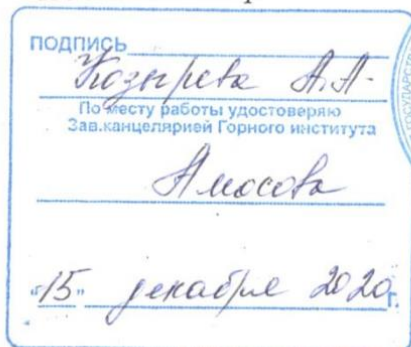 ПОДПИСЬ
Козырева А.А.
По месту работы удостоверяю
Зав.канцелярией Горного института
Амосова
"15" декабря 2020г.